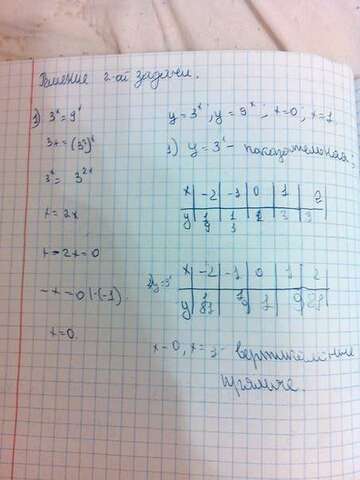 Решение 2-ой задачи.
1) 3ˣ = 9ˣ
3ˣ = (3²)ˣ
3ˣ = 3²ˣ
x = 2x
x - 2x = 0
-x = 0 | · (-1)
x = 0
y = 3ˣ; y = 9ˣ; x = 0, x = 1
1) y = 3ˣ - показательная,
x | -2 | -1 | 0 | 1 | 2
y | 1/9 | 1/3 | 1 | 3 | 9
2) y = 9ˣ
x | -2 | -1 | 0 | 1 | 2
y | 1/81 | 1/9 | 1 | 9 | 81
x = 0, x = 1 - вертикальные
прямые.